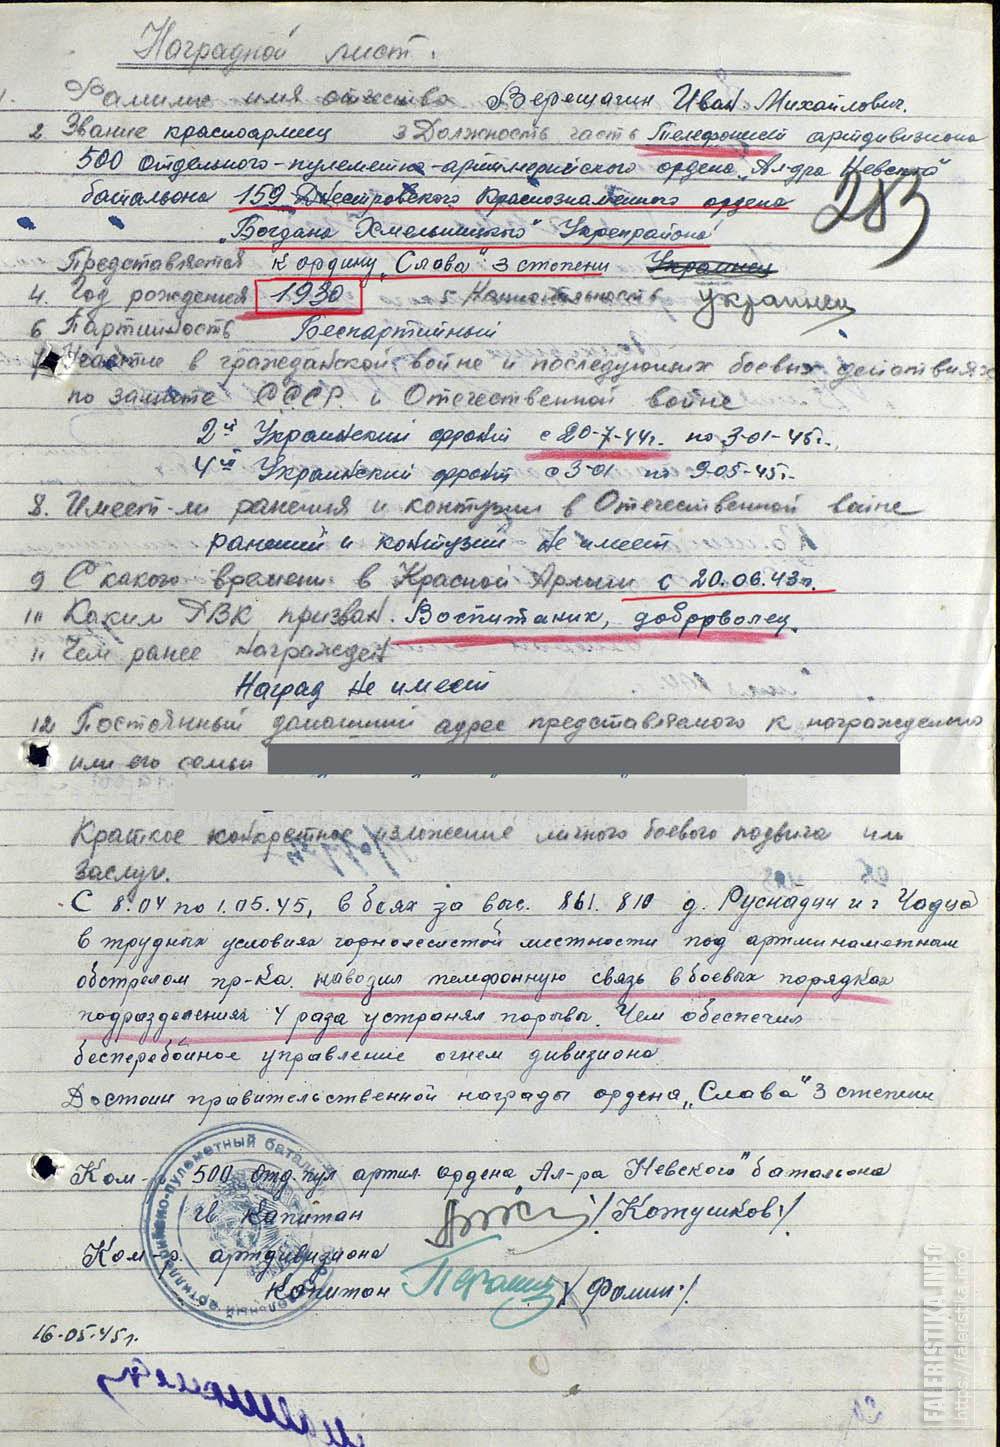 Наградной лист.
1. Фамилия имя отчество Верещагин Иван Михайлович.
2 Звание красноармеец 3 Должность часть Телефонист артдивизиона
500 отдельного-пулеметно-артиллерийского ордена „Ал-дра Невского"
батальона 159 Днестровского Краснознаменного ордена
283
„Богдана Хмельницкого" Укрепрайона
Представляется к ордину „Слава" 3 степени Украинец
4. Год рождения 1930 5 Национальность украинец
6 Партийность Беспартийный
7 Участие в гражданской войне и последующих боевых действиях
по защите СССР. и Отечественной войне
2ой Украинский фронт с 20-7-44г. по 3-01-45г.
4ый Украинский фронт с 3-01 по 9-05-45г.
8. Имеет-ли ранения и контузии в Отечественной войне
ранений и контузий не имеет
9 С какого времени в Красной Армии с 20.06.43г.
10 Каким РВК призван. Воспитаник, доброволец.
11 Чем ранее награжден
Наград не имеет
12 Постоянный домашний адрес представляемого к награждению
или его семьи
Краткое конкретное изложение личного боевого подвига или
заслуг.
С 8.04 по 1.05.45, в боях за выс. 861. 810 д. и г Чадца
в трудных условиях горнолесистой местности под артминаметным
обстрелом пр-ка. наводил телефонную связь в боевых порядках
подразделениях 4 раза устранял порывы. Чем обеспечил
бесперебойное управление огнем дивизиона
Достоин правительственной награды ордена „Слава" 3 степени
Ком-р 500 отд. пул артил. ордена „Ал-ра Невского" батальона
гв капитан /Кожушков/
Ком-р. артдивизиона
капитан /Фомин/
16-05-45г.
FALERISTIKA.INFO
https://faleristika.info